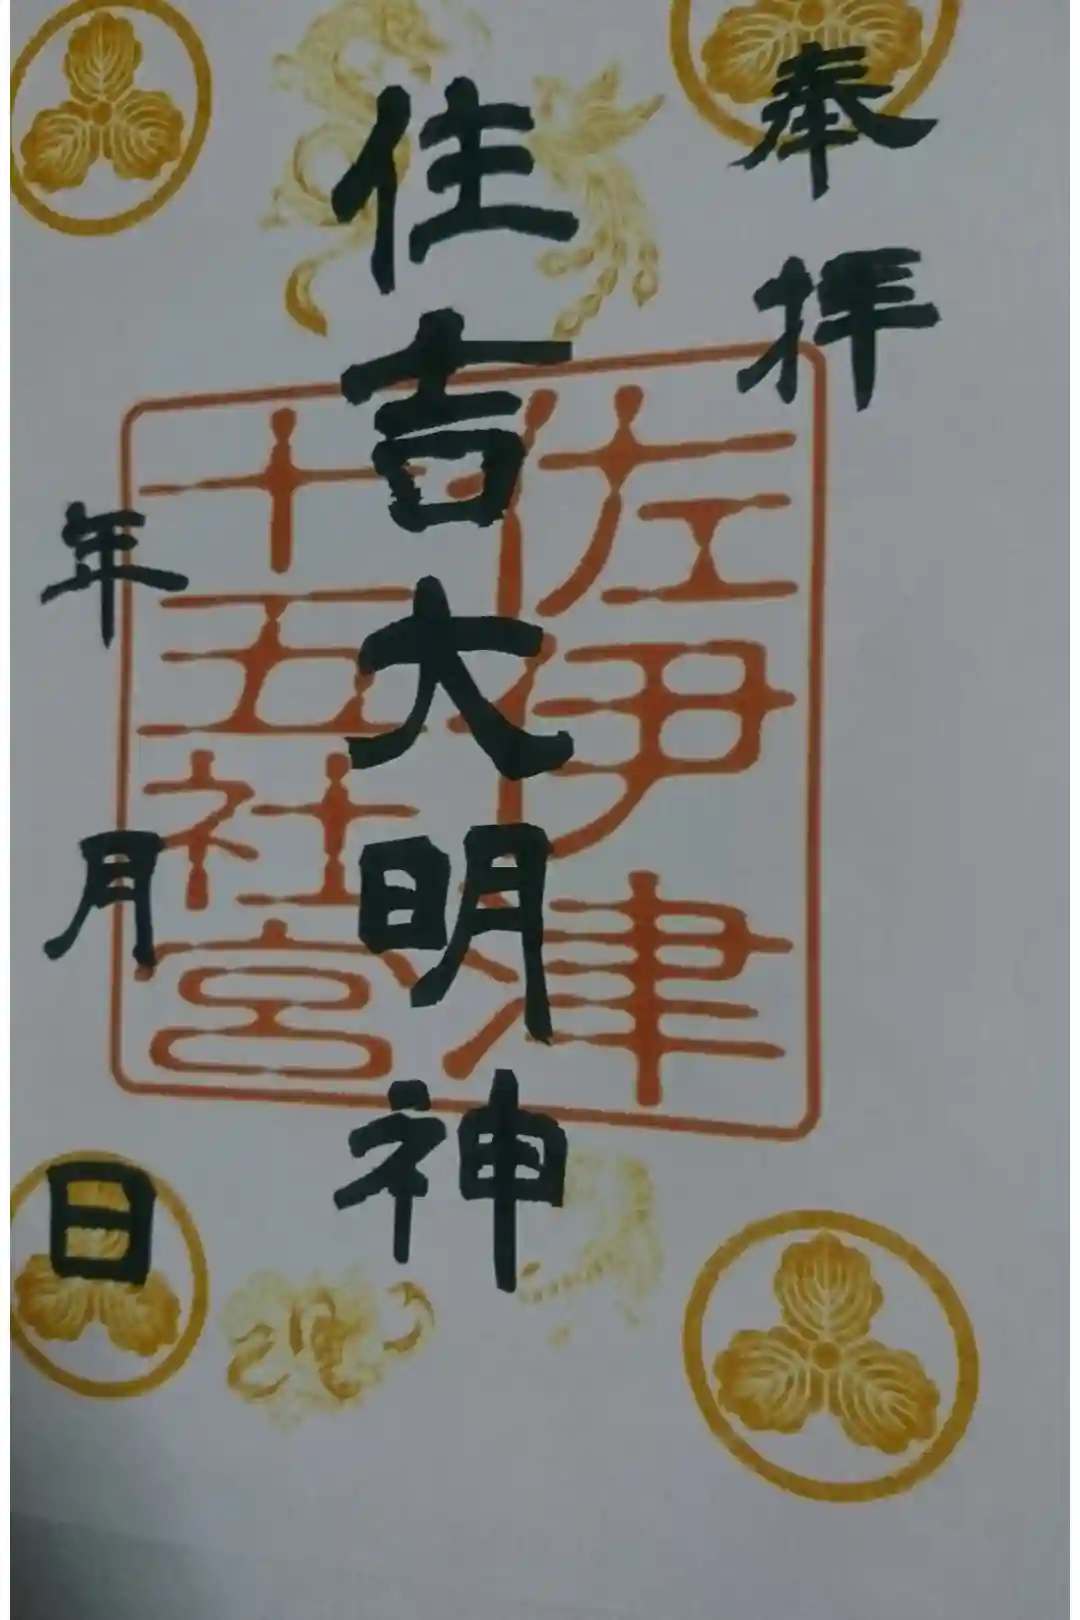 奉拝
住吉大明神
年月日
佐伊津
十五社宮